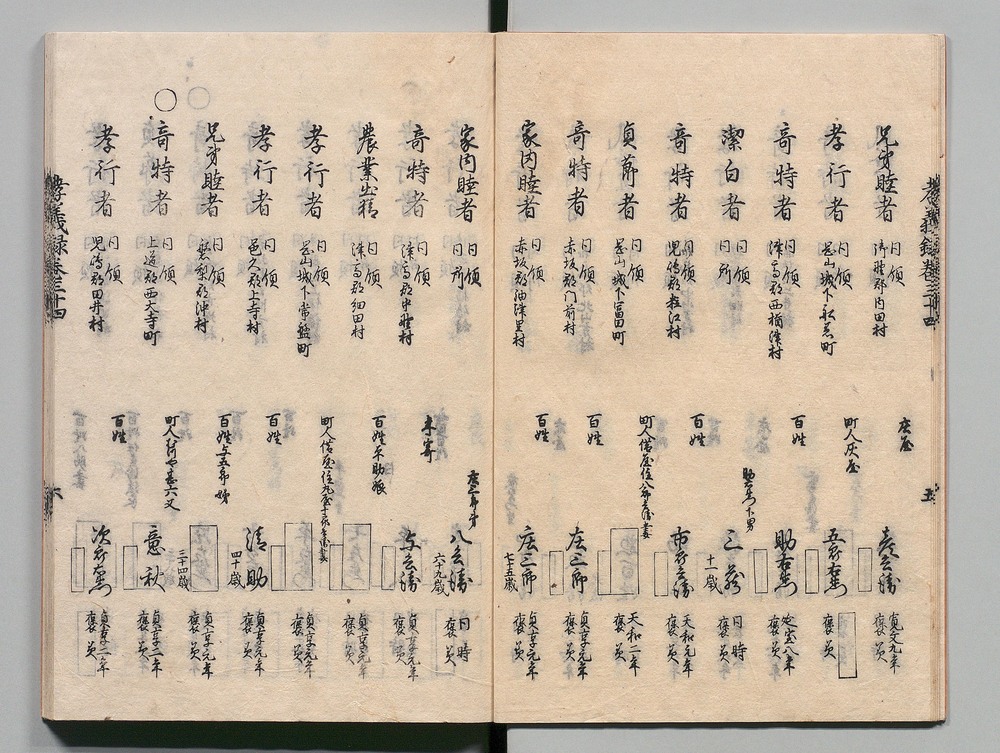 孝義録巻三十四 五
兄弟睦者 同領 御野郡内田村 庄屋 彦兵衛 寛文九年 褒美
孝行者 同領 岡山城下船着町 町人灰屋 五郎右衛門 褒美
奇特者 同領 津高郡西楢津村 百姓 助右衛門 延宝八年 褒美
潔白者 同領 同所 助右衛門下男 三蔵 十一歳 同時 褒美
奇特者 同領 児島郡粒江村 百姓 市郎兵衛 天和元年 褒美
貞節者 同領 岡山城下富田町 町人借屋住八郎兵衛妻 天和二年 褒美
奇特者 同領 赤坂郡門前村 百姓 庄三郎 貞享元年 褒美
家内睦者 同領 赤坂郡油津里村 百姓 庄三郎 七十五歳 貞享元年 褒美
家内睦者 同領 同所 庄三郎弟 八兵衛 六十九歳 同時 褒美
奇特者 同領 津高郡中牧村 与兵衛 貞享元年 褒美
農業出精 同領 津高郡細田村 百姓平助娘 貞享元年 褒美
孝行者 同領 岡山城下常盤町 町人借屋住丸屋十郎兵衛妻 貞享元年 褒美
孝行者 同領 邑久郡上寺村 百姓 清助 四十歳 貞享元年 褒美
兄弟睦者 同領 磐梨郡沖村 百姓与五郎 三十四歳 貞享元年 褒美
○奇特者 同領 上道郡西大寺町 町人 甚六父 意秋 貞享二年 褒美
孝行者 同領 児島郡田井村 百姓 次郎右衛門 貞享二年 褒美
孝義録巻三十四 六